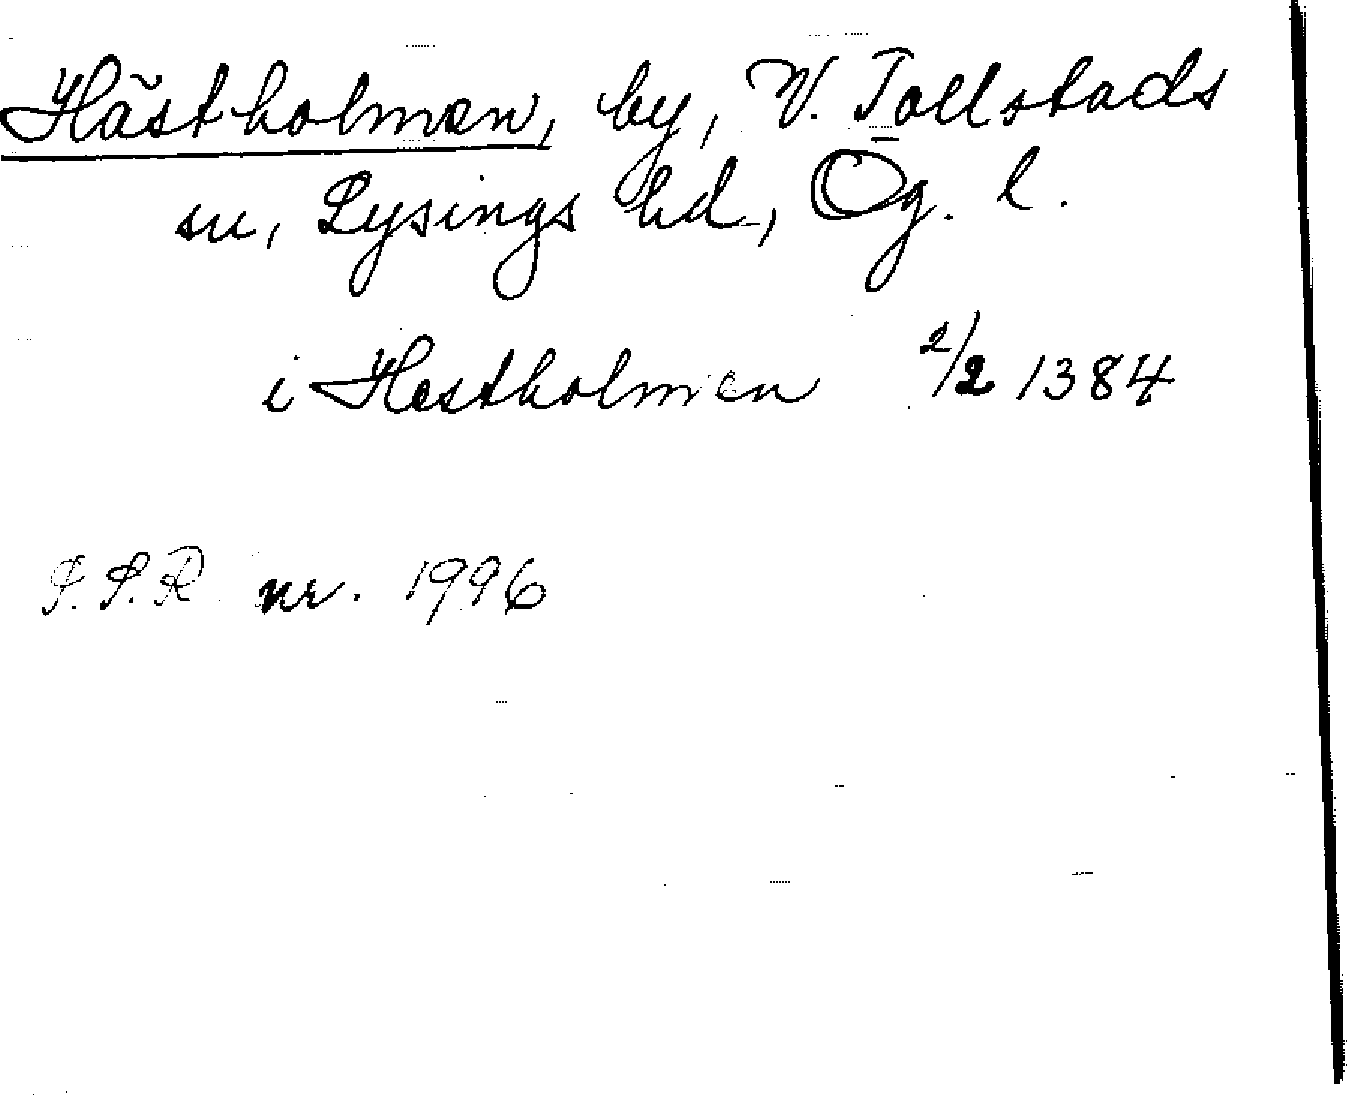 Hästholmen, by, V. Tollstads
sn, Lysings hd, Ög. l.
i Hestholmen 2/2 1384
S.S.R nr. 1996